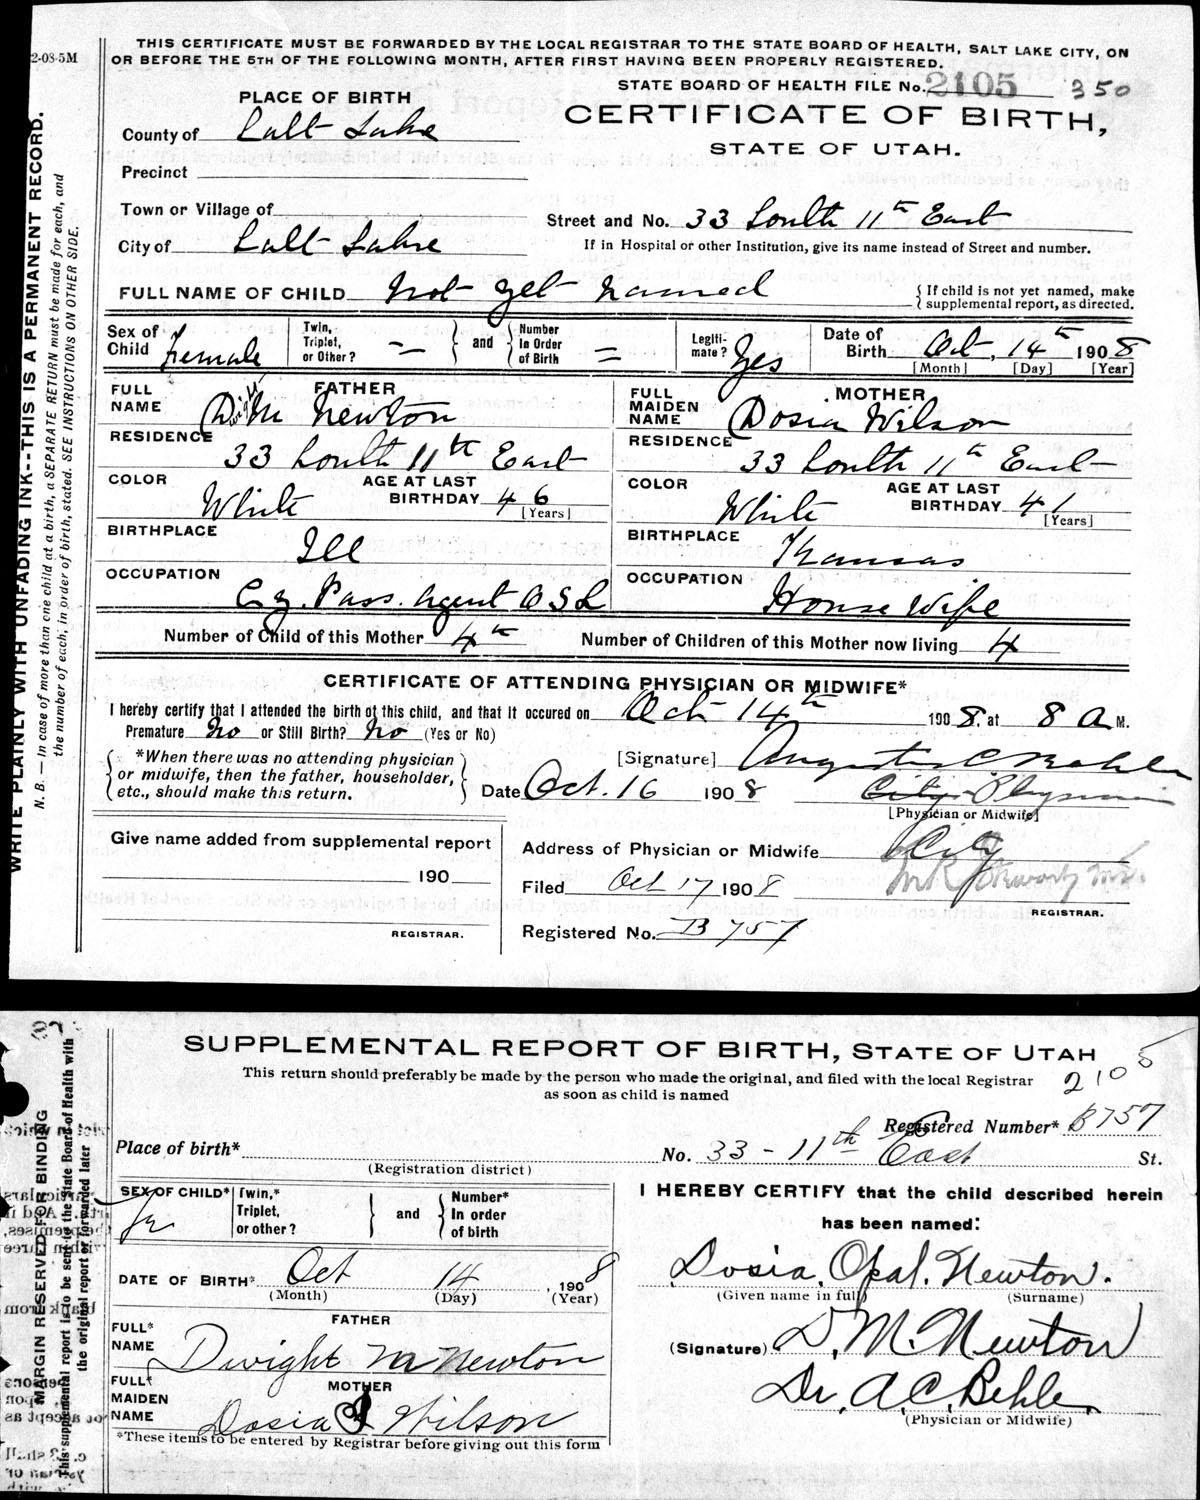 THIS CERTIFICATE MUST BE FORWARDED BY THE LOCAL REGISTRAR TO THE STATE BOARD OF HEALTH, SALT LAKE CITY, ON
OR BEFORE THE 5TH OF THE FOLLOWING MONTH, AFTER FIRST HAVING BEEN PROPERLY REGISTERED.
2-08-5M
STATE BOARD OF HEALTH FILE No. 2105 350
PLACE OF BIRTH
CERTIFICATE OF BIRTH,
STATE OF UTAH.
County of Salt Lake
Precinct
Town or Village of
Street and No. 33 South 11th East
City of Salt Lake
If in Hospital or other Institution, give its name instead of Street and number.
FULL NAME OF CHILD Not yet named
{ If child is not yet named, make
supplemental report, as directed.
Sex of Child Female
Twin, Triplet, or Other? —
and
Number In Order of Birth =
Legiti-mate? Yes
Date of Birth Oct. 14th 1908
[Month] [Day] [Year]
FATHER
FULL NAME Dwight M Newton
RESIDENCE 33 South 11th East
COLOR White
AGE AT LAST BIRTHDAY 46
[Years]
BIRTHPLACE Ill
OCCUPATION Cy. Pass. Agent O S L
MOTHER
FULL MAIDEN NAME Dosia Wilson
RESIDENCE 33 South 11th East
COLOR White
AGE AT LAST BIRTHDAY 41
[Years]
BIRTHPLACE Kansas
OCCUPATION House Wife
Number of Child of this Mother 4th
Number of Children of this Mother now living 4
CERTIFICATE OF ATTENDING PHYSICIAN OR MIDWIFE*
I hereby certify that I attended the birth of this child, and that it occured on Oct 14th 1908. at 8 A M.
Premature No or Still Birth? No (Yes or No)
*When there was no attending physician
or midwife, then the father, householder,
etc., should make this return.
[Signature] Augustus C Behle
Date Oct. 16 1908
City Physician
[Physician or Midwife]
Give name added from supplemental report
190
REGISTRAR.
Address of Physician or Midwife City
Filed Oct 17 1908
REGISTRAR.
Registered No. B 757
WRITE PLAINLY WITH UNFADING INK--THIS IS A PERMANENT RECORD.
N. B. — In case of more than one child at a birth, a SEPARATE RETURN must be made for each, and
the number of each, in order of birth, stated. SEE INSTRUCTIONS ON OTHER SIDE.
SUPPLEMENTAL REPORT OF BIRTH, STATE OF UTAH
This return should preferably be made by the person who made the original, and filed with the local Registrar
as soon as child is named
2105
Registered Number* B757
Place of birth*
(Registration district)
No. 33 - 11th East St.
SEX OF CHILD* Fe
Twin,* Triplet, or other?
and
Number* In order of birth
I HEREBY CERTIFY that the child described herein
has been named:
DATE OF BIRTH* Oct 14, 1908
(Month) (Day) (Year)
Dosia, Opal. Newton.
(Given name in full) (Surname)
FATHER
FULL* NAME Dwight M Newton
(Signature) D. M. Newton
MOTHER
FULL* MAIDEN NAME Dosia Wilson
Dr. A. C. Behle
(Physician or Midwife)
*These items to be entered by Registrar before giving out this form
MARGIN RESERVED FOR BINDING
This supplemental report is to be sent to the State Board of Health with
the original report or forwarded later